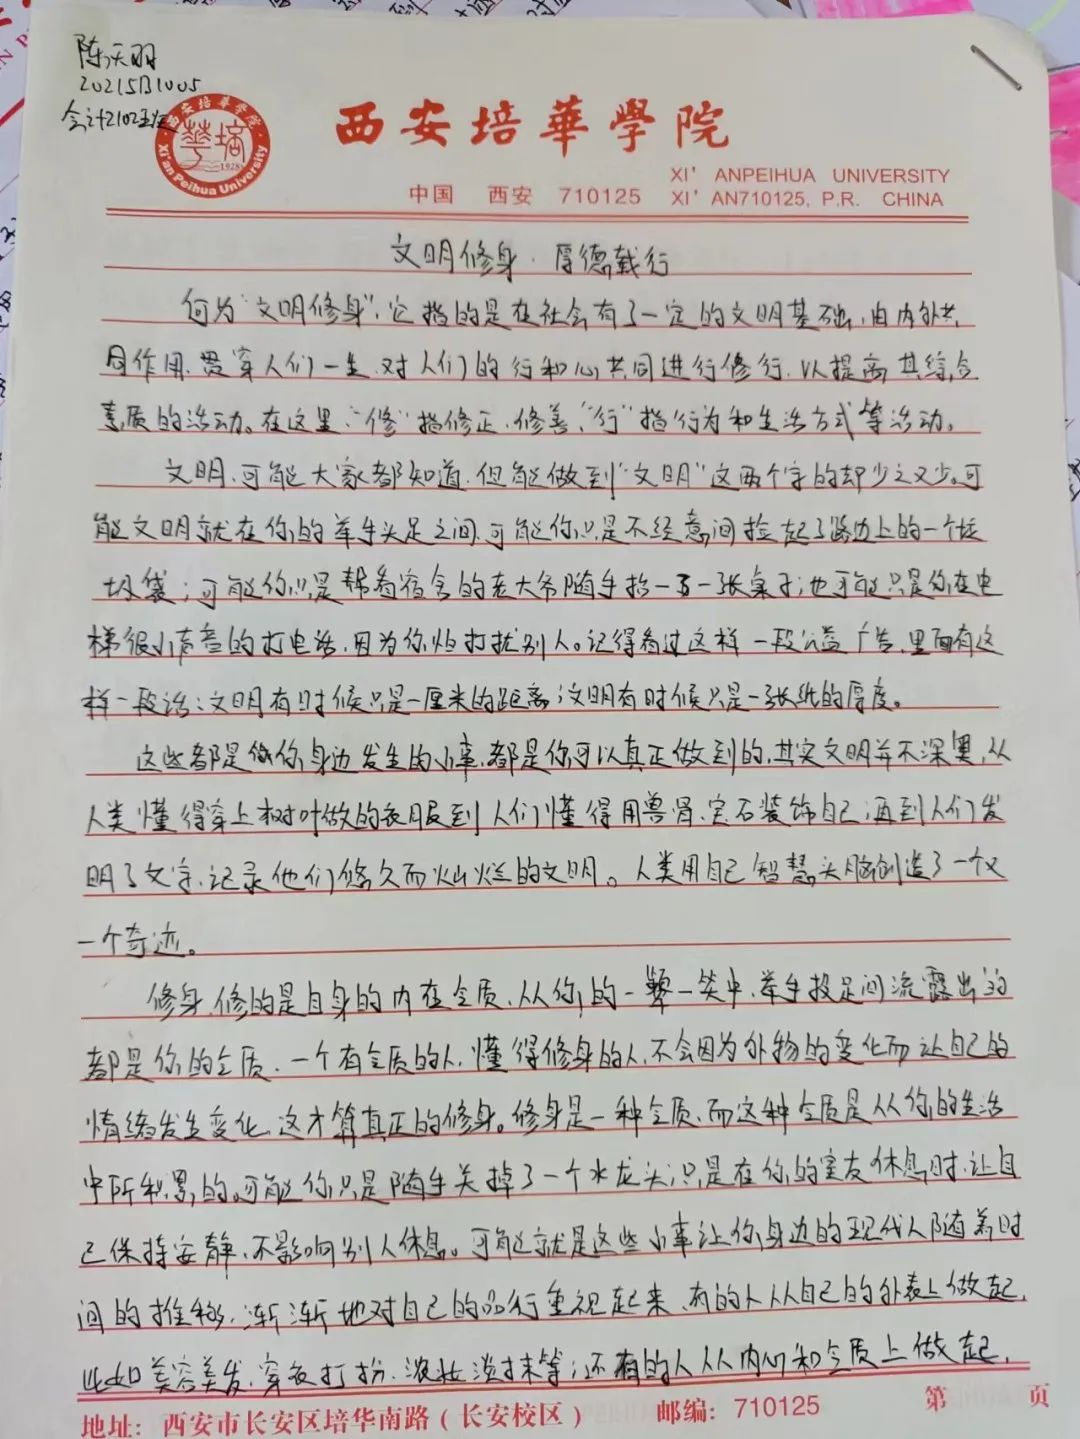 陈天羽
20215B1005
会计2102班
西安培華學院
XI' ANPEIHUA UNIVERSITY
中国 西安 710125 XI' AN710125, P.R. CHINA
西安培华学院
华培
1928
Xi'an Peihua University
文明修身·厚德载行
何为“文明修身”,它指的是在社会有了一定的文明基础,由内外共
同作用,贯穿人们一生,对人们的行和心共同进行修行,以提高其综合
素质的活动。在这里,“修”指修正、修善,“行”指行为和生活方式等活动。
文明,可能大家都知道,但能做到“文明”这两个字的却少之又少。可
能文明就在你的举手头足之间,可能你只是不经意间捡起了路边上的一个垃
圾袋;可能你只是帮着宿舍的老大爷随手抬一下一张桌子;也可能只是你在电
梯很小声音的打电话,因为你怕打扰别人。记得看过这样一段公益广告,里面有这
样一段话:文明有时候只是一厘米的距离;文明有时候只是一张纸的厚度。
这些都是你身边发生的小事,都是你可以真正做到的,其实文明并不深奥,从
人类懂得穿上树叶做的衣服到人们懂得用兽骨、宝石装饰自己;再到人们发
明了文字,记录他们悠久而灿烂的文明。人类用自己智慧头脑创造了一个又
一个奇迹。
修身,修的是自身的内在气质,从你的一颦一笑中,举手投足间流露出的
都是你的气质,一个有气质的人,懂得修身的人,不会因为外物的变化而让自己的
情绪发生变化,这才算真正的修身。修身是一种气质,而这种气质是从你的生活
中所积累的。可能你只是随手关掉了一个水龙头;只是在你的室友休息时,让自
己保持安静,不影响别人休息。可能就是这些小事让你身边的现代人随着时
间的推移,渐渐地对自己的品行重视起来,有的人从自己的外表上做起,
比如美容美发,穿衣打扮,浓妆淡抹等;还有的人从内心和气质上做起,
地址:西安市长安区培华南路(长安校区) 邮编:710125 第 页